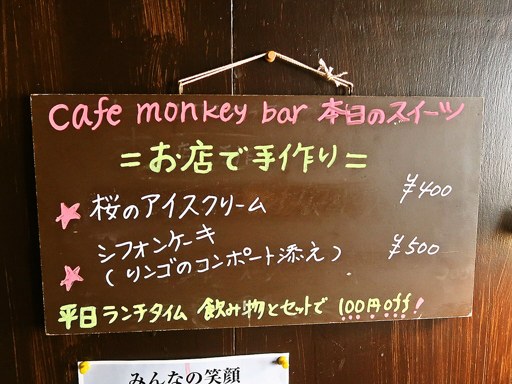 cafe monkey bar 本日のスイーツ
=お店で手作り=
★ 桜のアイスクリーム ¥400
★ シフォンケーキ
(リンゴのコンポート添え) ¥500
平日ランチタイム 飲み物とセットで 100円off!
みんなの笑顔